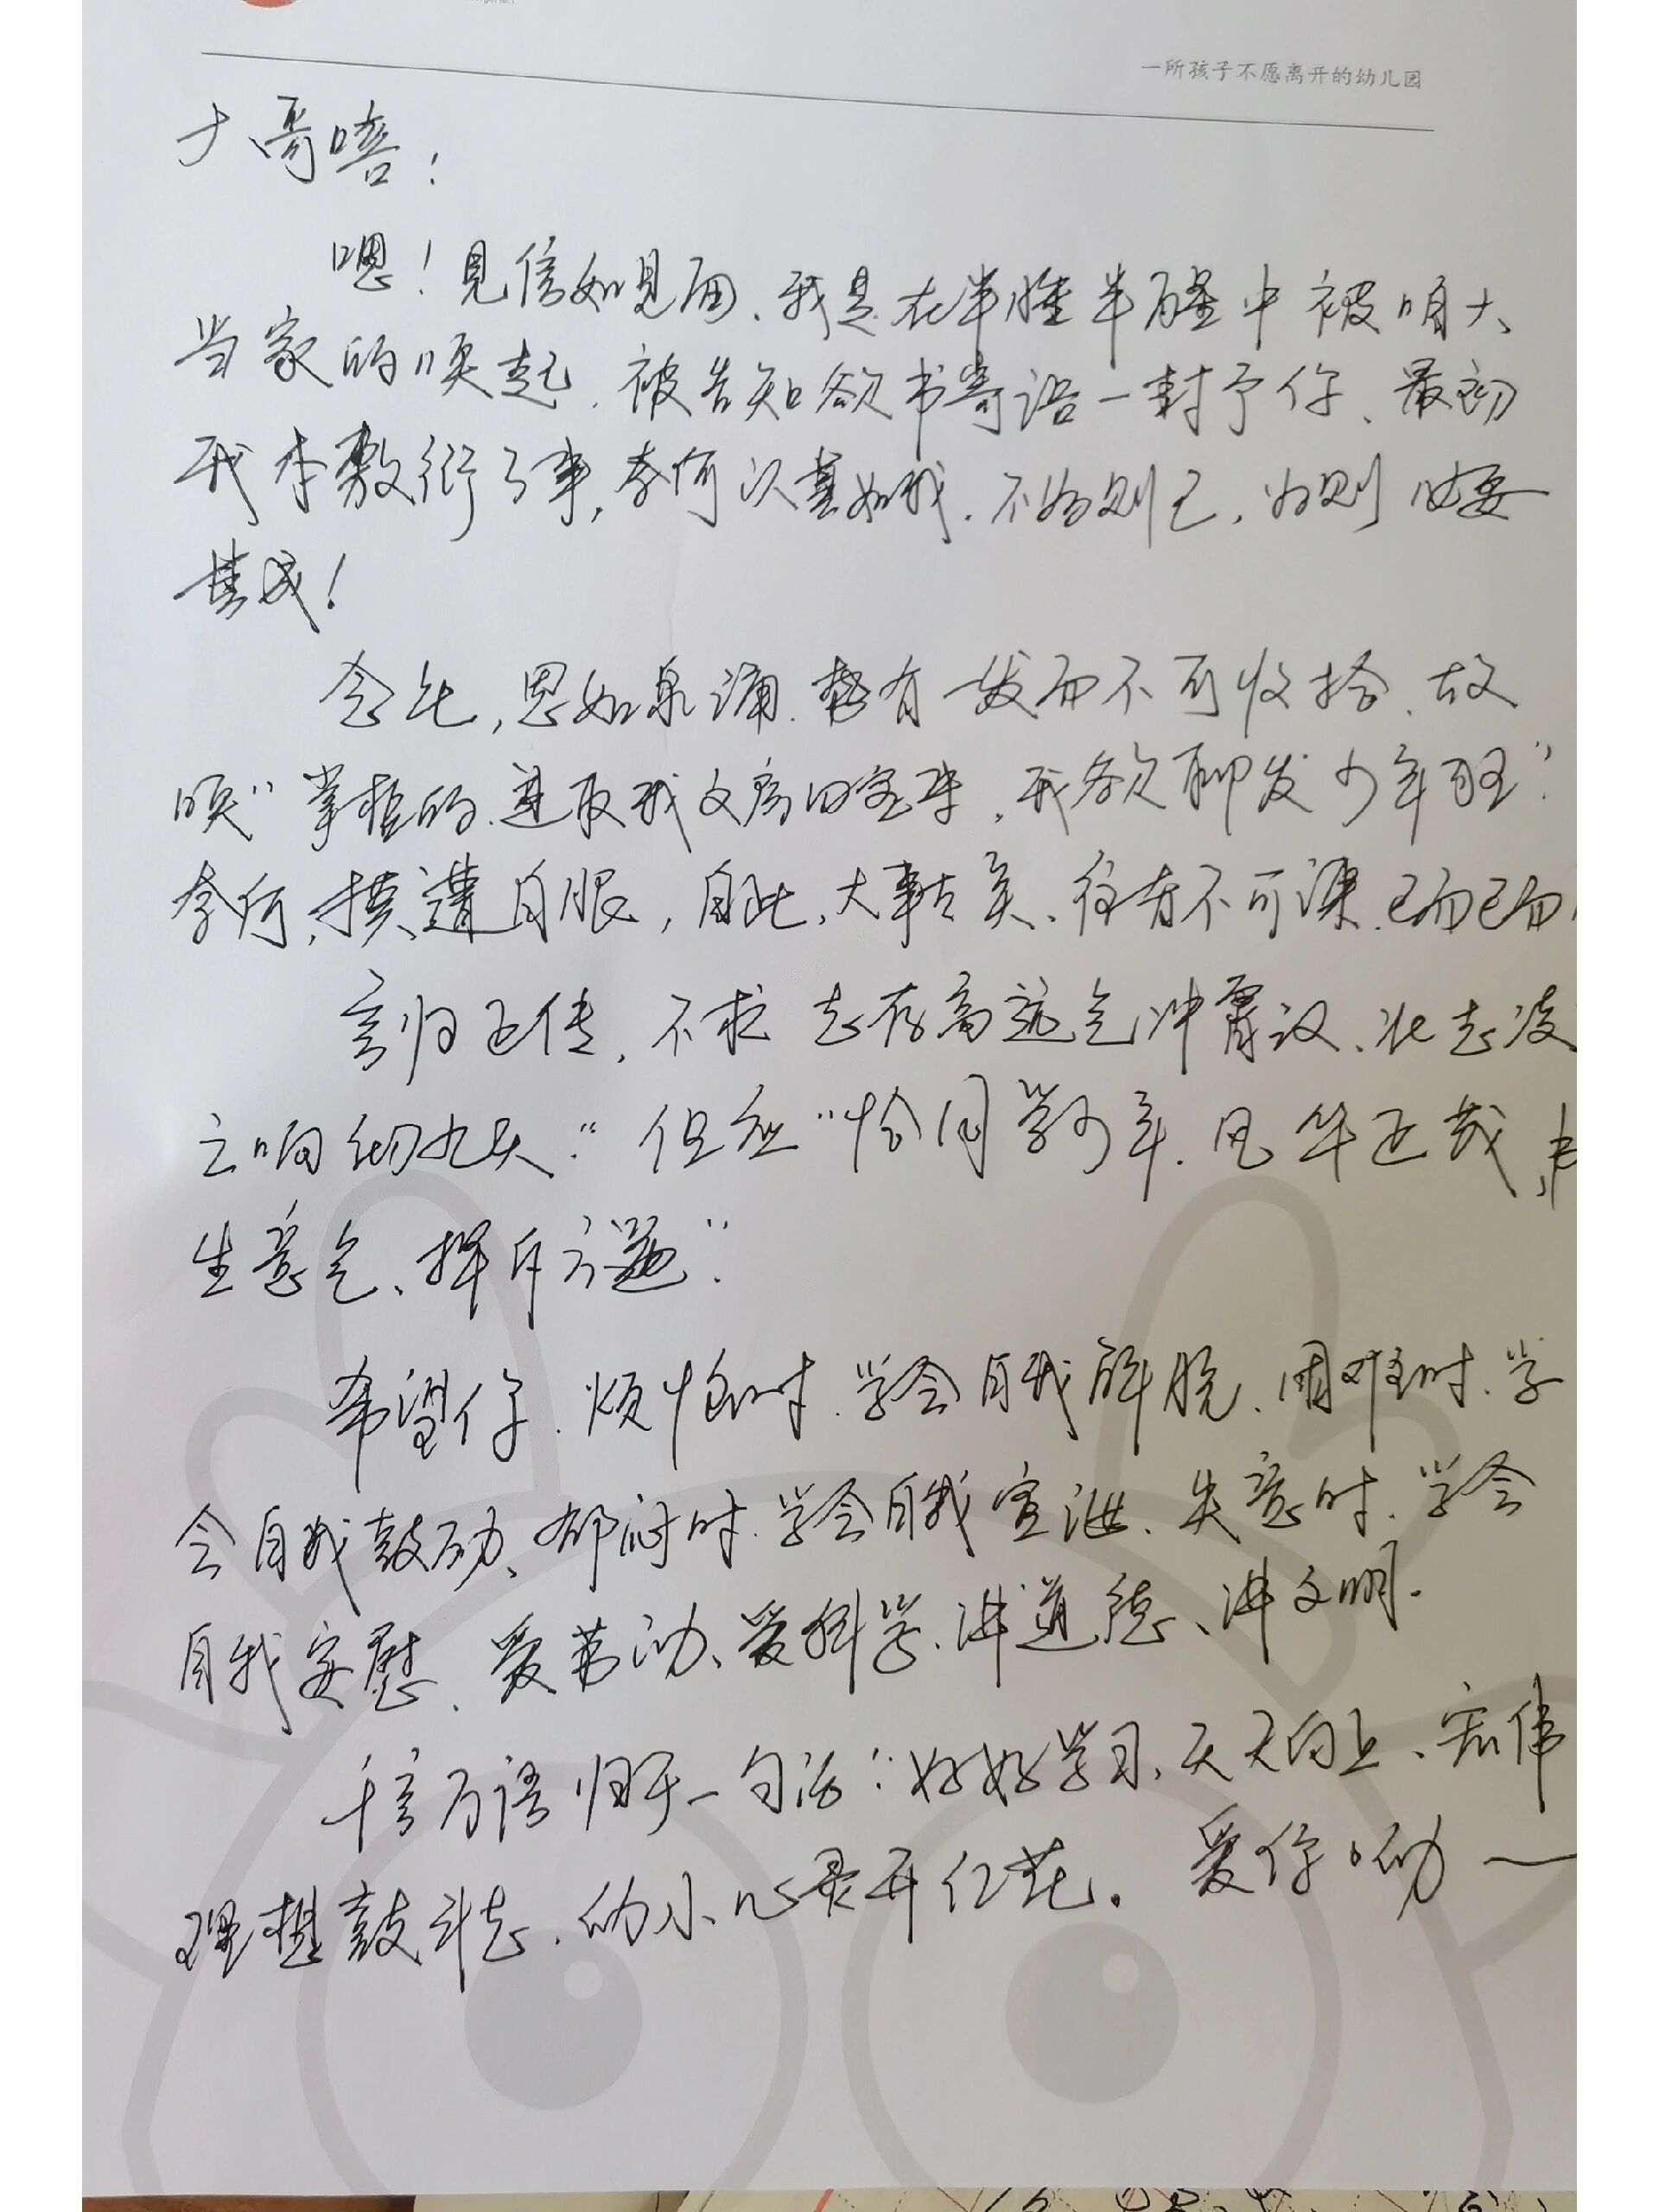 一所孩子不愿离开的幼儿园
大哥嗒:
嗯！见信如见面、我是在半睡半醒中被咱大、
当家的唤起.被告知欲书寄语一封予你、最初
我本敷衍了事,奈何认真如我.不为则已,为则必要
其成！
念此,思如泉涌.势有一发而不可收拾.故
唤"掌柜的.速取我文房四宝来,我欲聊发少年狂"
奈何,横遭白眼,自此,大事去矣、往者不可谏.已而已而
言归正传,不求 志存高远气冲霄汉、壮志凌
云响彻九天"但应"恰同学少年.风华正茂,书
生意气、挥斥方遒"
希望你.烦恼时.学会自我解脱、困难时.学
会自我鼓励、郁闷时.学会自我宣泄、失意时.学会
自我安慰、爱劳动、爱科学.讲道德、讲文明.
千言万语归于一句话:好好学习,天天向上、宏伟
理想鼓斗志.幼小心灵开红花。爱你呦一